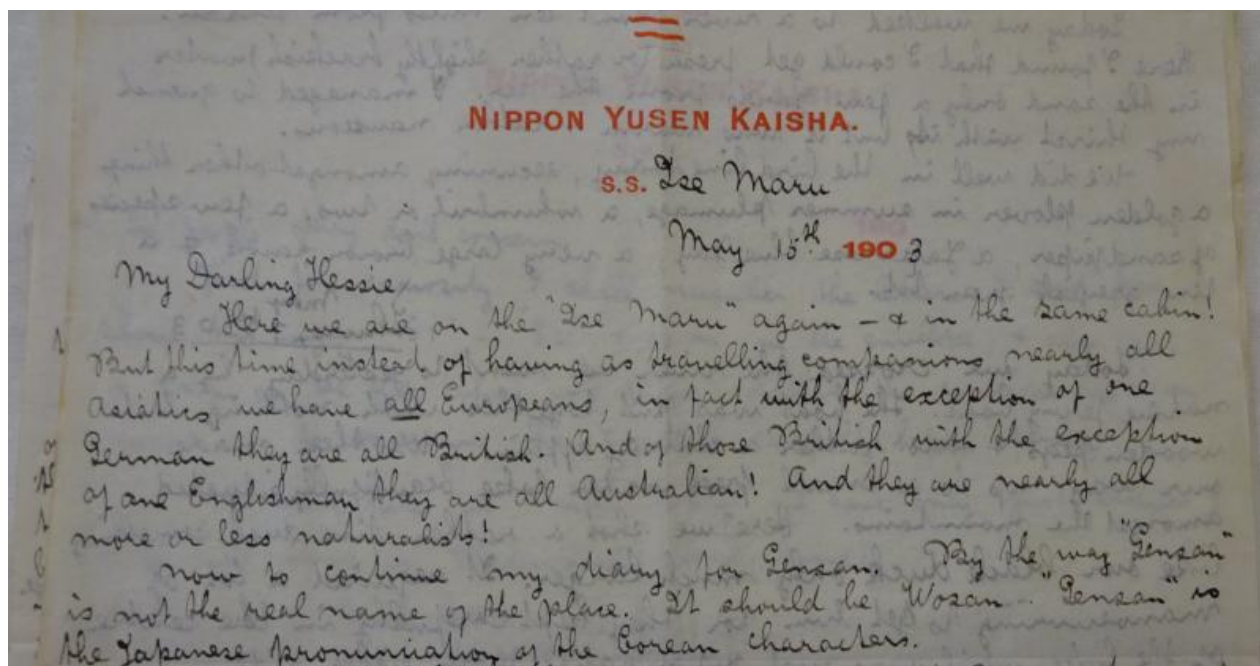 NIPPON YUSEN KAISHA.
S.S. Ise Maru
May 15th 1903
My Darling Hessie
Here we are on the "Ise Maru" again – & in the same cabin!
But this time instead of having as travelling companions nearly all
asiatics, we have all Europeans, in fact with the exception of one
German they are all British. And of those British with the exception
of one Englishman they are all Australian! And they are nearly all
more or less naturalists!
Now to continue my diary for Gensan. By the way "Gensan"
is not the real name of the place. It should be Wosan. "Gensan" is
the Japanese pronunciation of the Corean characters.